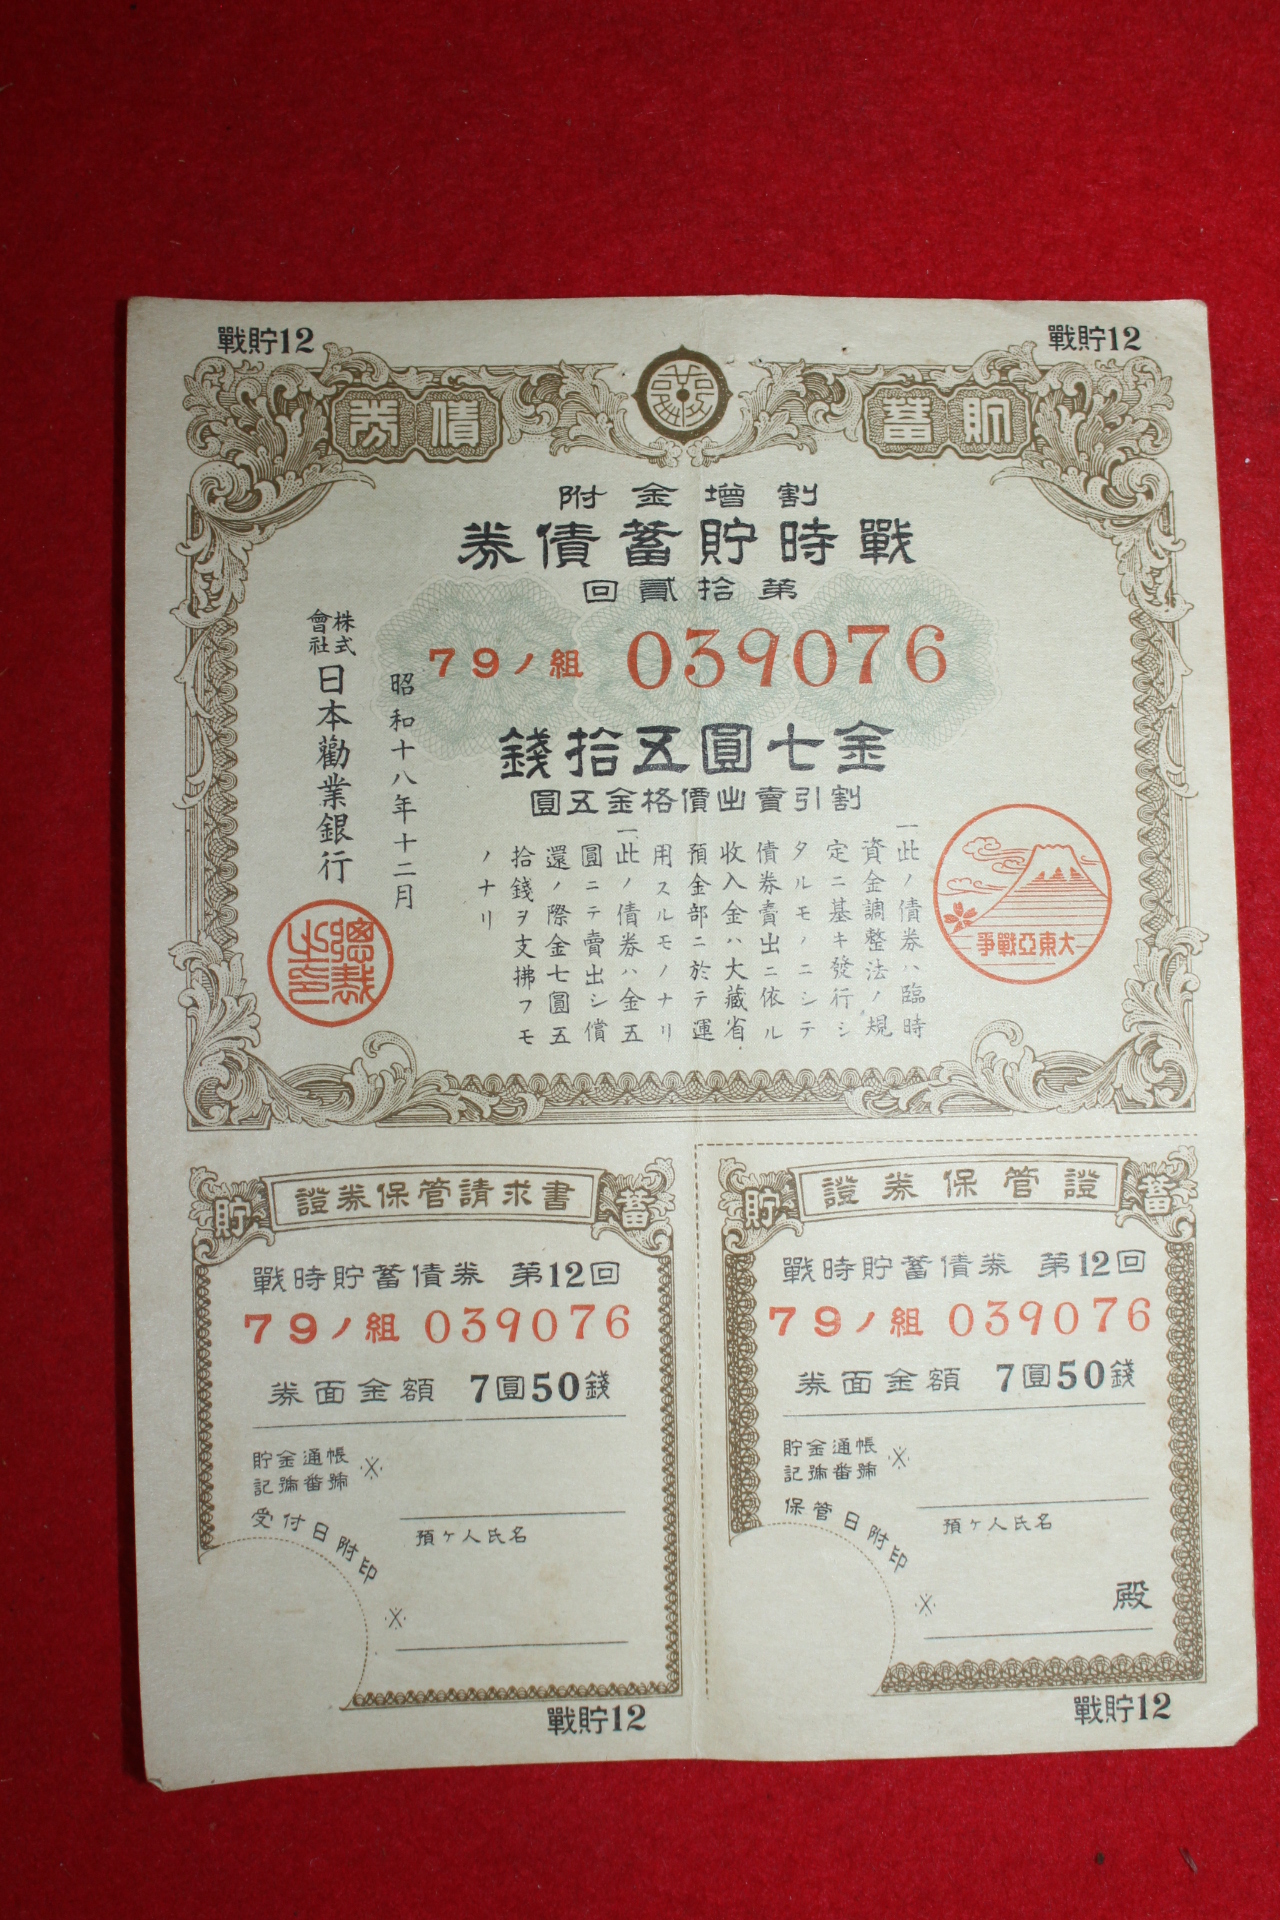 戰貯12
戰貯12
貯蓄
債券
割增金附
戰時貯蓄債券
第拾貳回
79ノ組 039076
金七圓五拾錢
割引賣出價格金五圓
一、此ノ債券ハ臨時
資金調整法ノ規
定ニ基キ發行シ
タルモノニシテ
債券賣出ニ依ル
收入金ハ大藏省
預金部ニ於テ運
用スルモノナリ
一、此ノ債券ハ金五
圓ニテ賣出シ償
還ノ際金七圓五
拾錢ヲ支拂フモ
ノナリ
大東亞戰爭
昭和十八年十二月
株式會社日本勸業銀行
總裁之印
貯 證券保管請求書 蓄
戰時貯蓄債券 第12回
79ノ組 039076
券面金額 7圓50錢
貯金通帳
記號番號 ※
受付日附印
預ケ人氏名
※
戰貯12
貯 證券保管證 蓄
戰時貯蓄債券 第12回
79ノ組 039076
券面金額 7圓50錢
貯金通帳
記號番號 ※
保管日附印
預ケ人氏名
※
殿
戰貯12